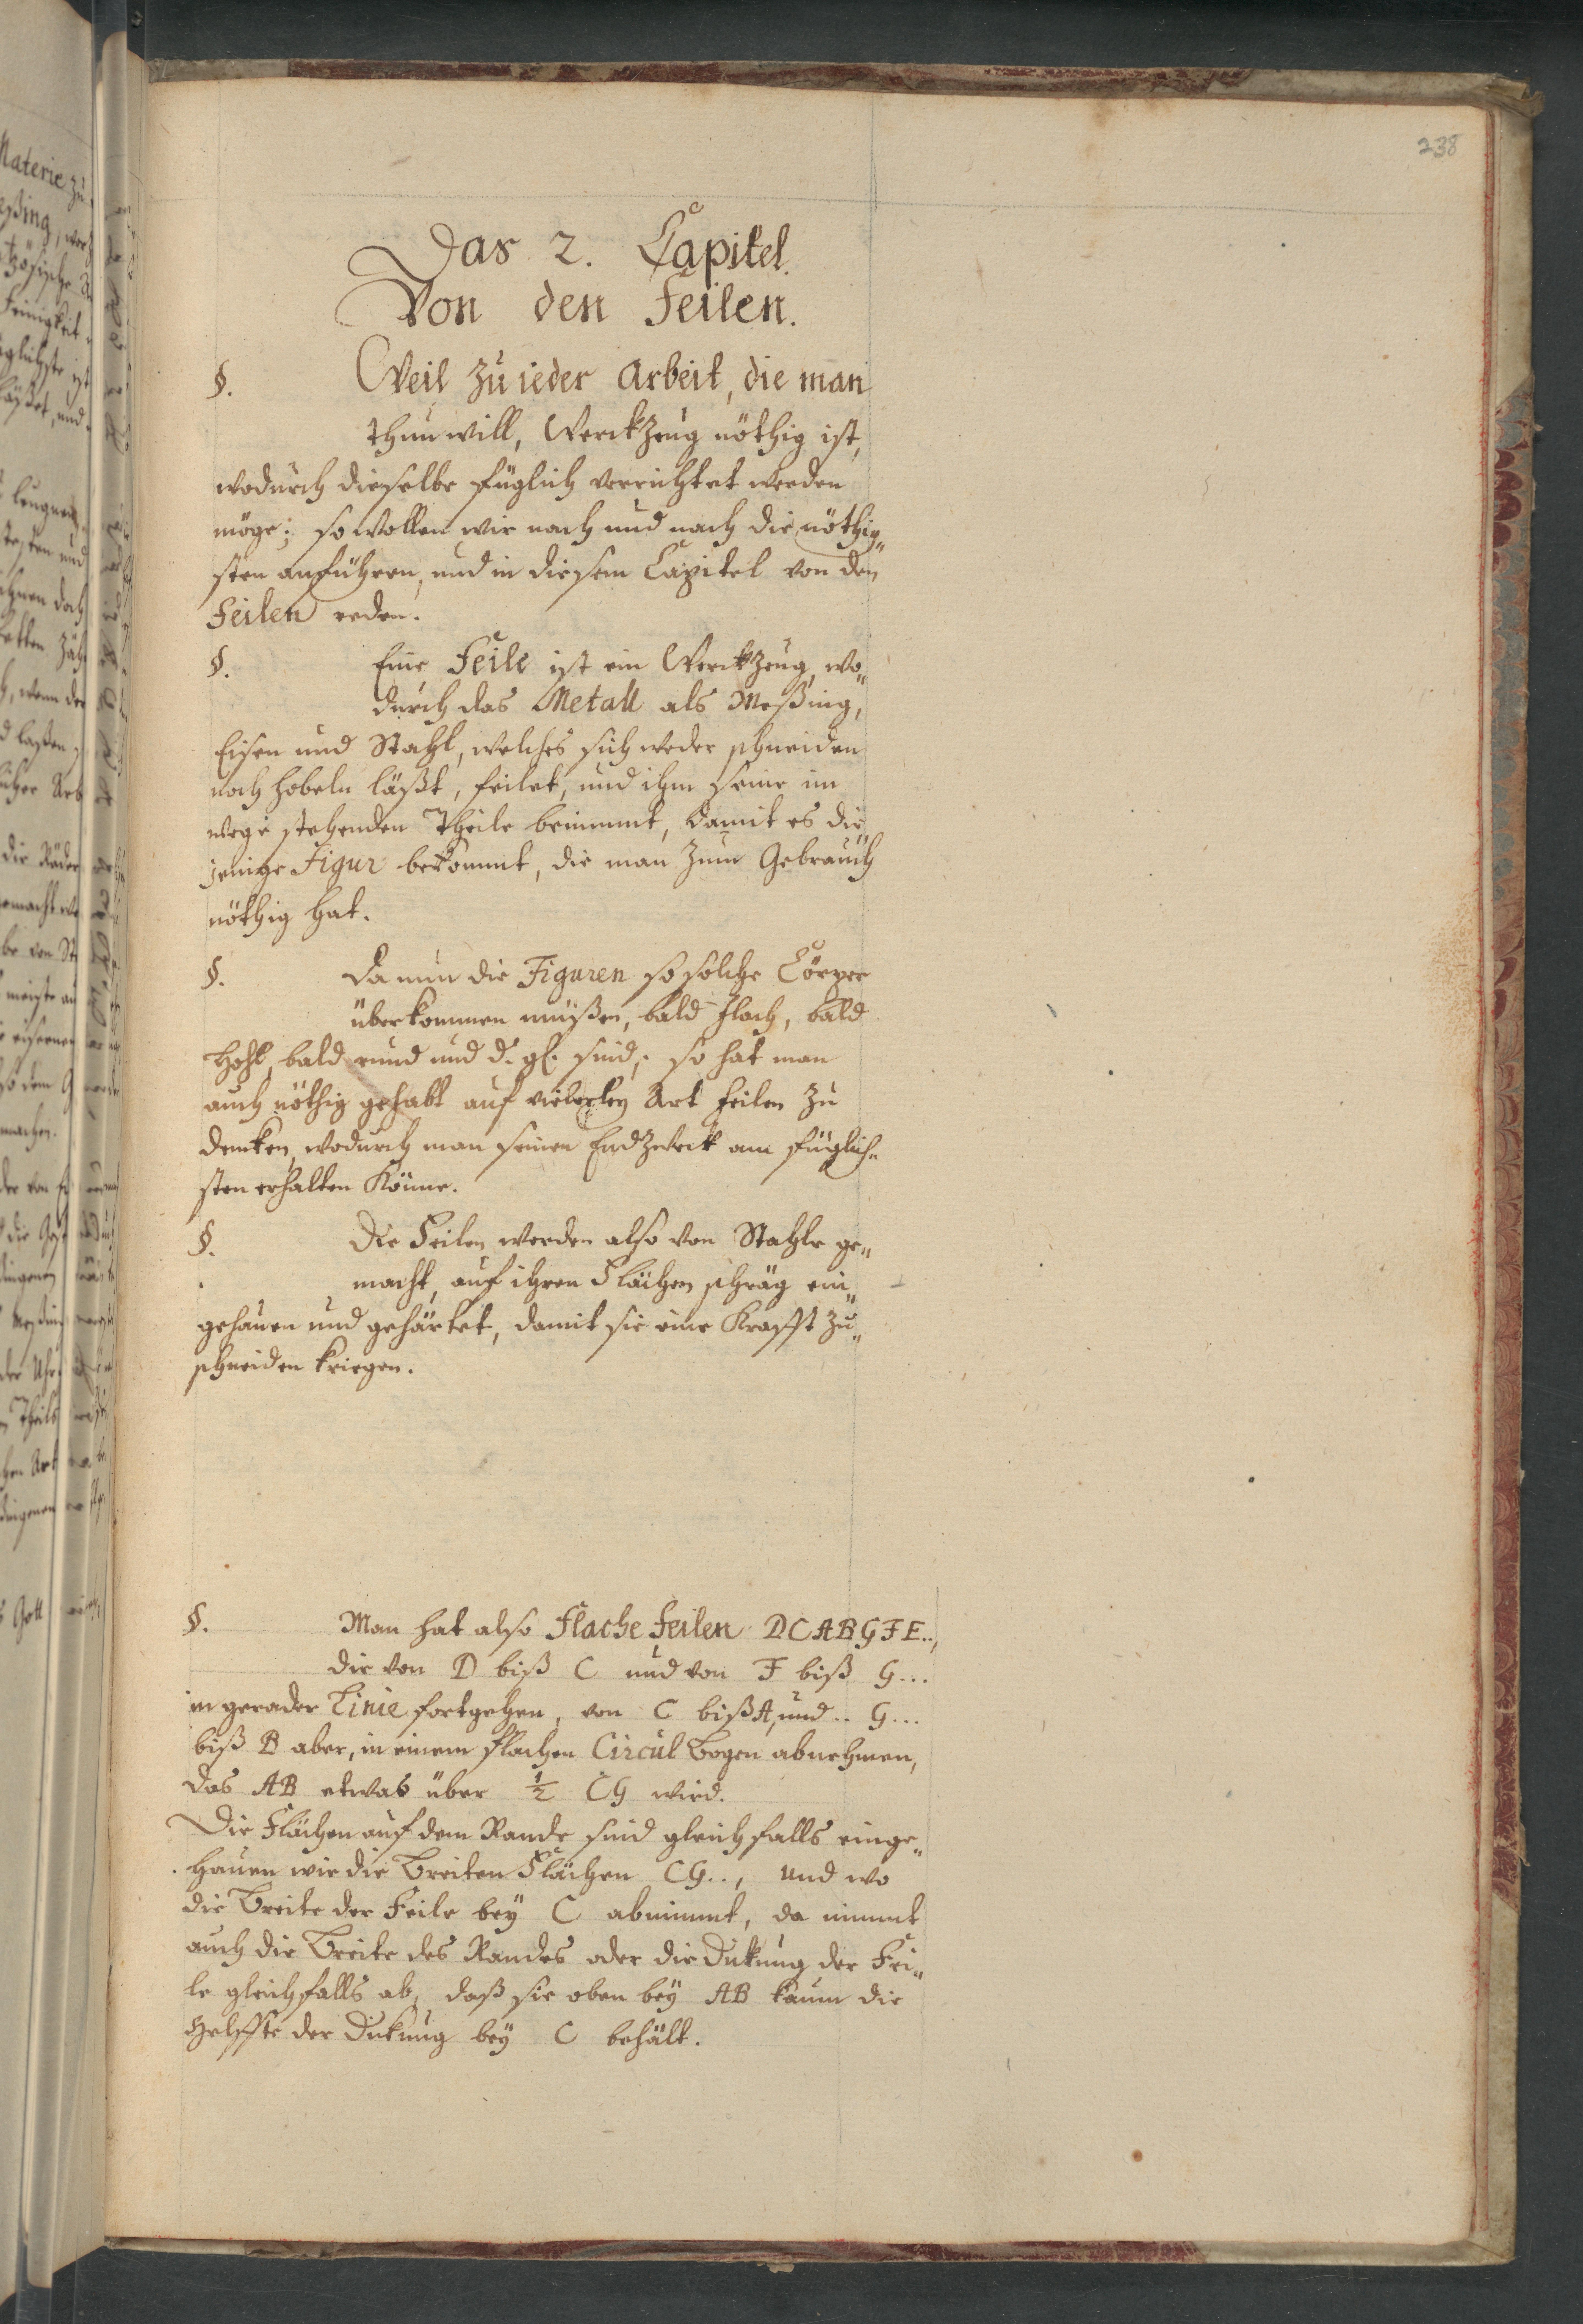 238
Das 2. Capitel.
Von den Feilen.
§. Weil zu ieder Arbeit, die man
thun will, Werckzeug nöthig ist,
wodurch dieselbe füglich verrichtet werden
möge; so wollen wir nach und nach die nöthig„
sten anführen, und in diesem Capitel von den
Feilen reden.
§. Eine Feile ist ein Werckzeug, wo„
durch das Metall als Meßing,
Eisen und Stahl, welches sich weder schneiden
noch hobeln läßt, feilet, und ihm seine im
wege stehenden Theile benimmt, damit es die„
jenige Figur bekommt, die man zum Gebrauch
nöthig hat.
§. Da nun die Figuren so solche Cörper
überkommen müßen, bald flach, bald
Hohl, bald rund und d. gl. sind; so hat man
auch nöthig gehabt auf vielerley Art Feilen zu
dencken, wodurch man seinen Endzweck am füglich„
sten erhalten könne.
§. Die Feilen werden also von Stahle ge„
macht, auf ihren Flächen schräg ein„
gehauen und gehärtet, damit sie eine Krafft zu„
schneiden kriegen.
§. Man hat also Flache Feilen DCABGFE..,
die von D biß C und von F biß G...
in gerader Linie fortgehen, von C biß A, und .. G...
biß B aber, in einem flachen Circul Bogen abnehmen,
das AB etwas über ½ CG wird.
Die Flächen auf dem Rande sind gleichfalls einge„
hauen wie die Breiten Flächen CG.., und wo
die Breite der Feile bey C abnimmt, da nimmt
auch die Breite des Randes oder die Dickung der Fei„
le gleichfalls ab, daß sie oben bey AB kaum die
Helffte der Dickung bey C behält.